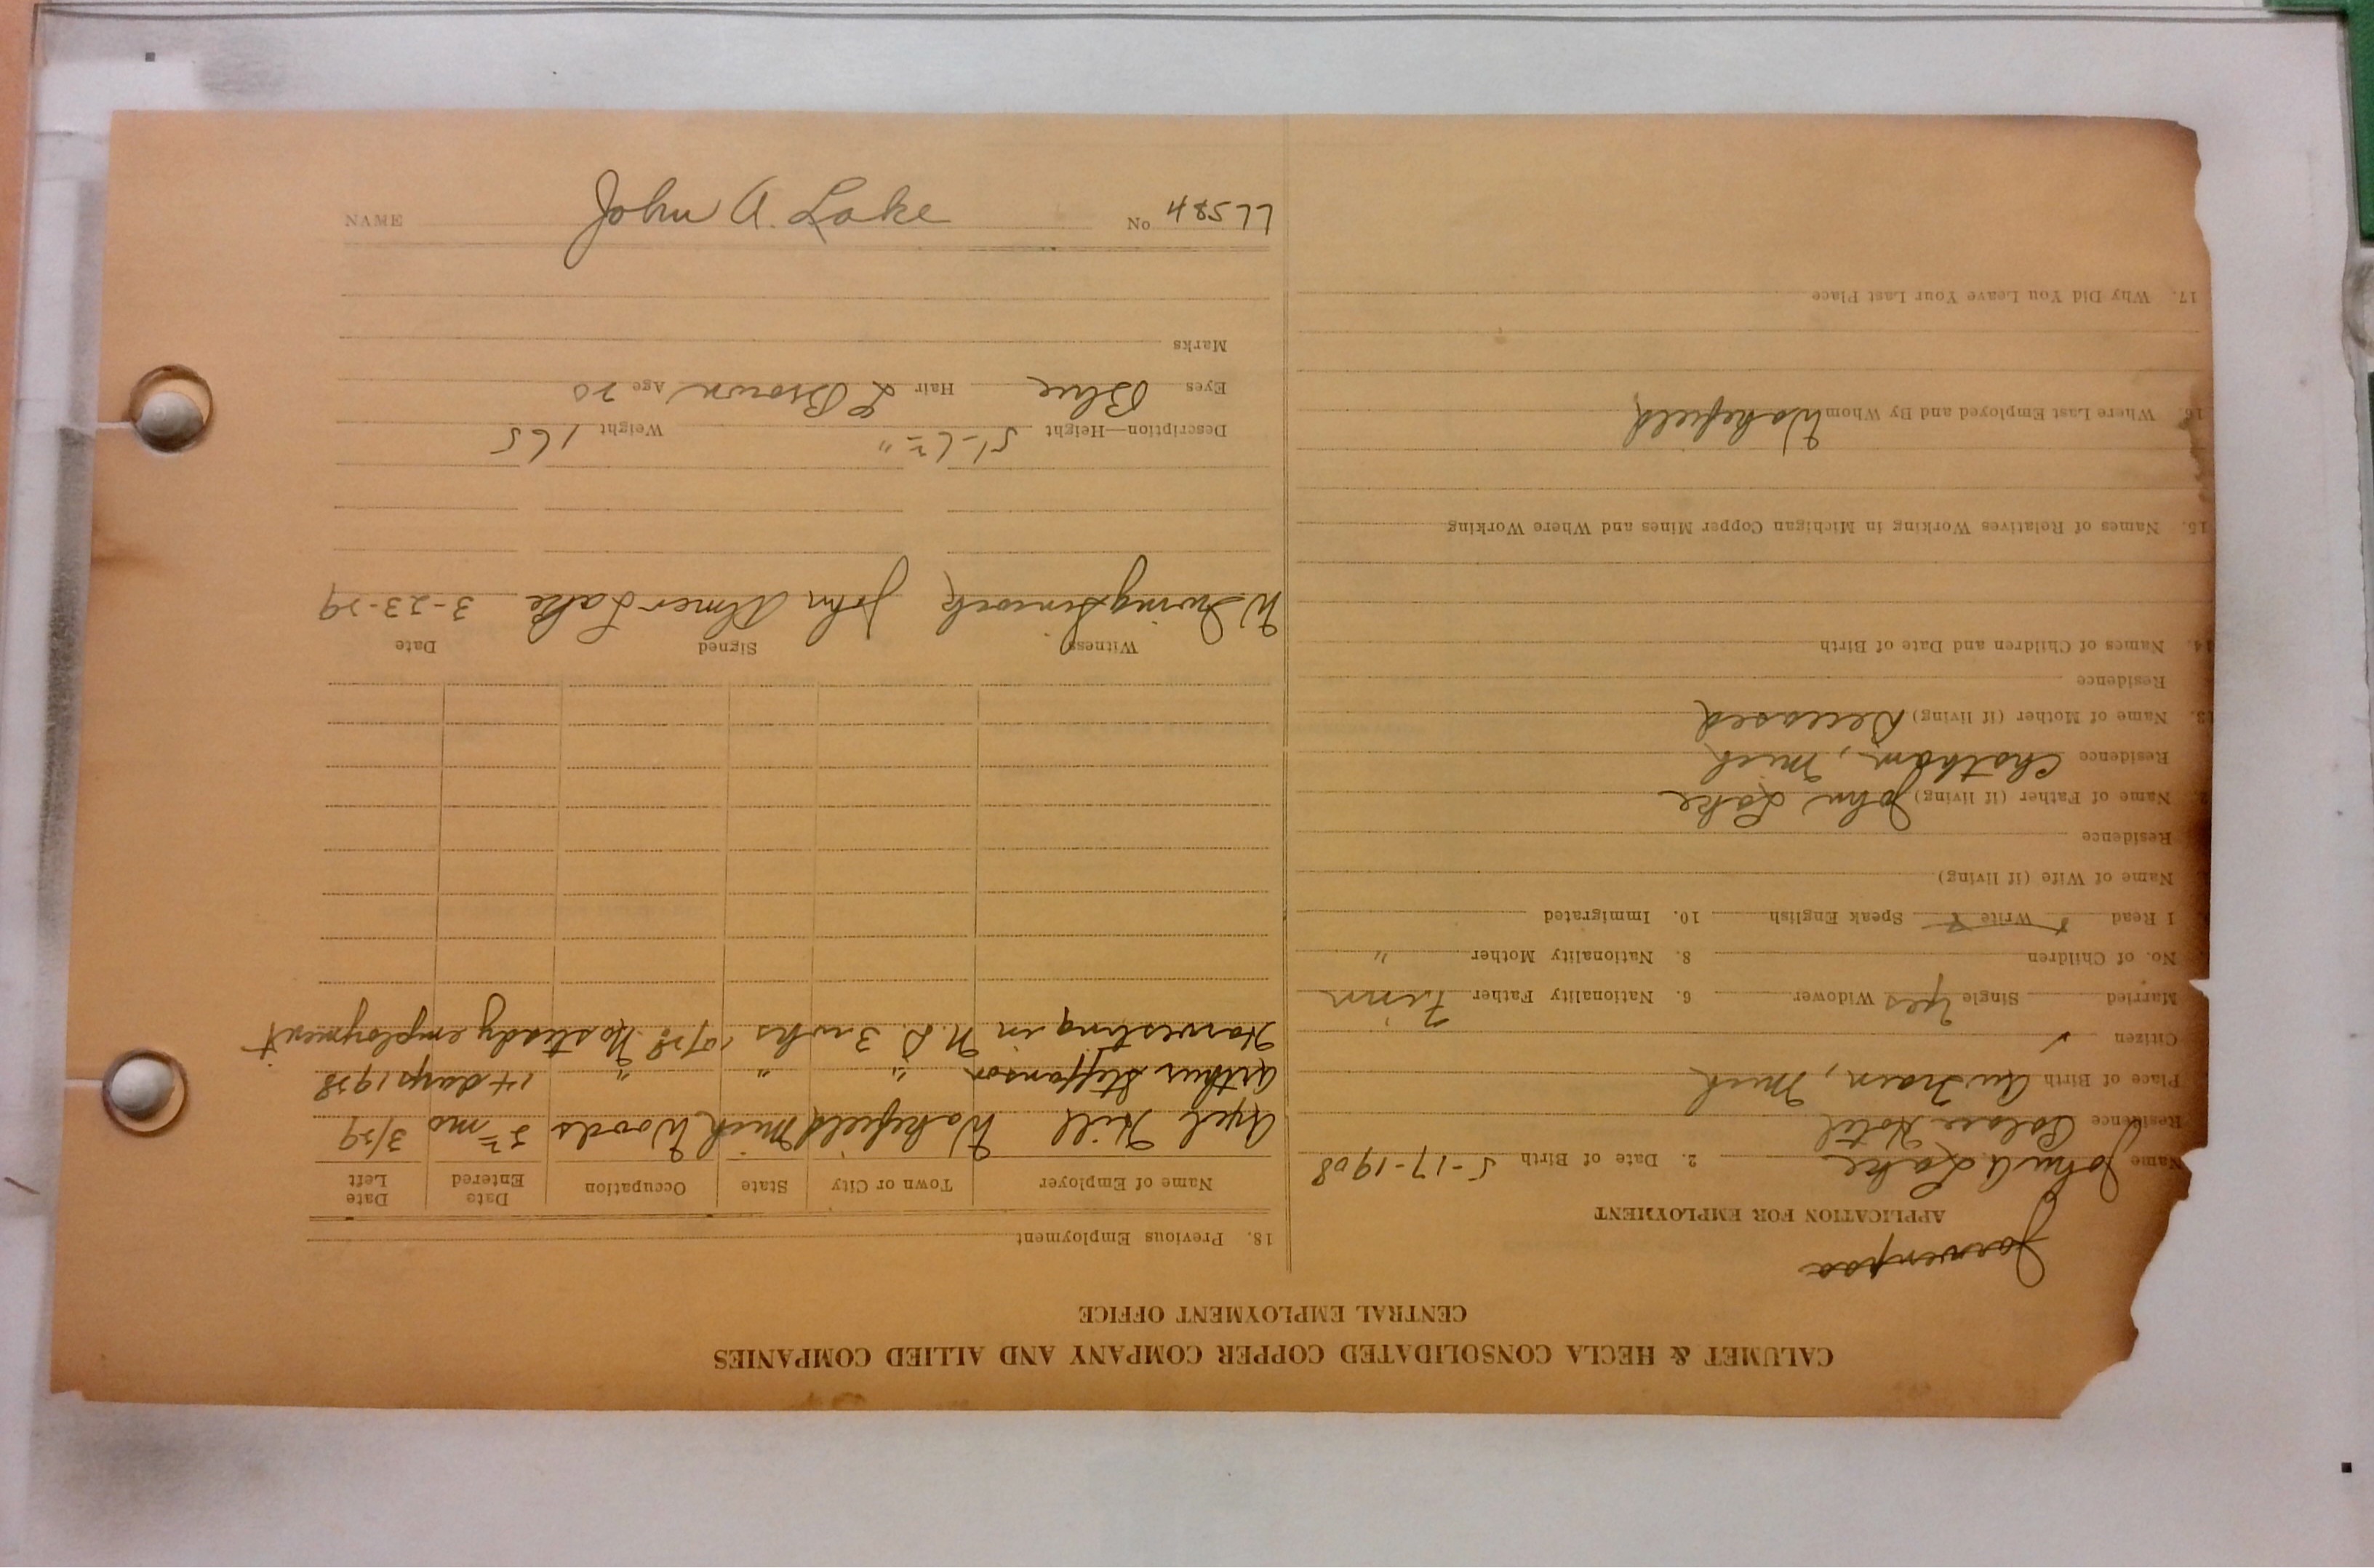 CALUMET & HECLA CONSOLIDATED COPPER COMPANY AND ALLIED COMPANIES
CENTRAL EMPLOYMENT OFFICE
Jarvenpaa
APPLICATION FOR EMPLOYMENT
Name John A Lake 2. Date of Birth 5-17-1908
Residence Palace Hotel
Place of Birth Au Train, Mich
Citizen ✓
Married Single Yes Widower 6. Nationality Father Finn
No. of Children 8. Nationality Mother "
I Read Write Speak English 10. Immigrated
Name of Wife (if living)
Residence
Name of Father (if living) John Lake
Residence Chatham, Mich
13. Name of Mother (if living) Deceased
Residence
14. Names of Children and Date of Birth
15. Names of Relatives Working in Michigan Copper Mines and Where Working
16. Where Last Employed and By Whom Wakefield
17. Why Did You Leave Your Last Place
18. Previous Employment
Name of Employer Town or City State Occupation Date Entered Date Left
Axel Hill Wakefield Mich Woods mo 3/29
Arthur Steffanson " " " 14 days 1928
Harvesting in N.D. 3 wks 1928 No steady employment
Witness Signed Date
W. Irving John Elmer Lake 3-23-29
Description—Height Weight 165
Eyes Blue Hair L Brown Age 20
Marks
NAME John A. Lake No 48577